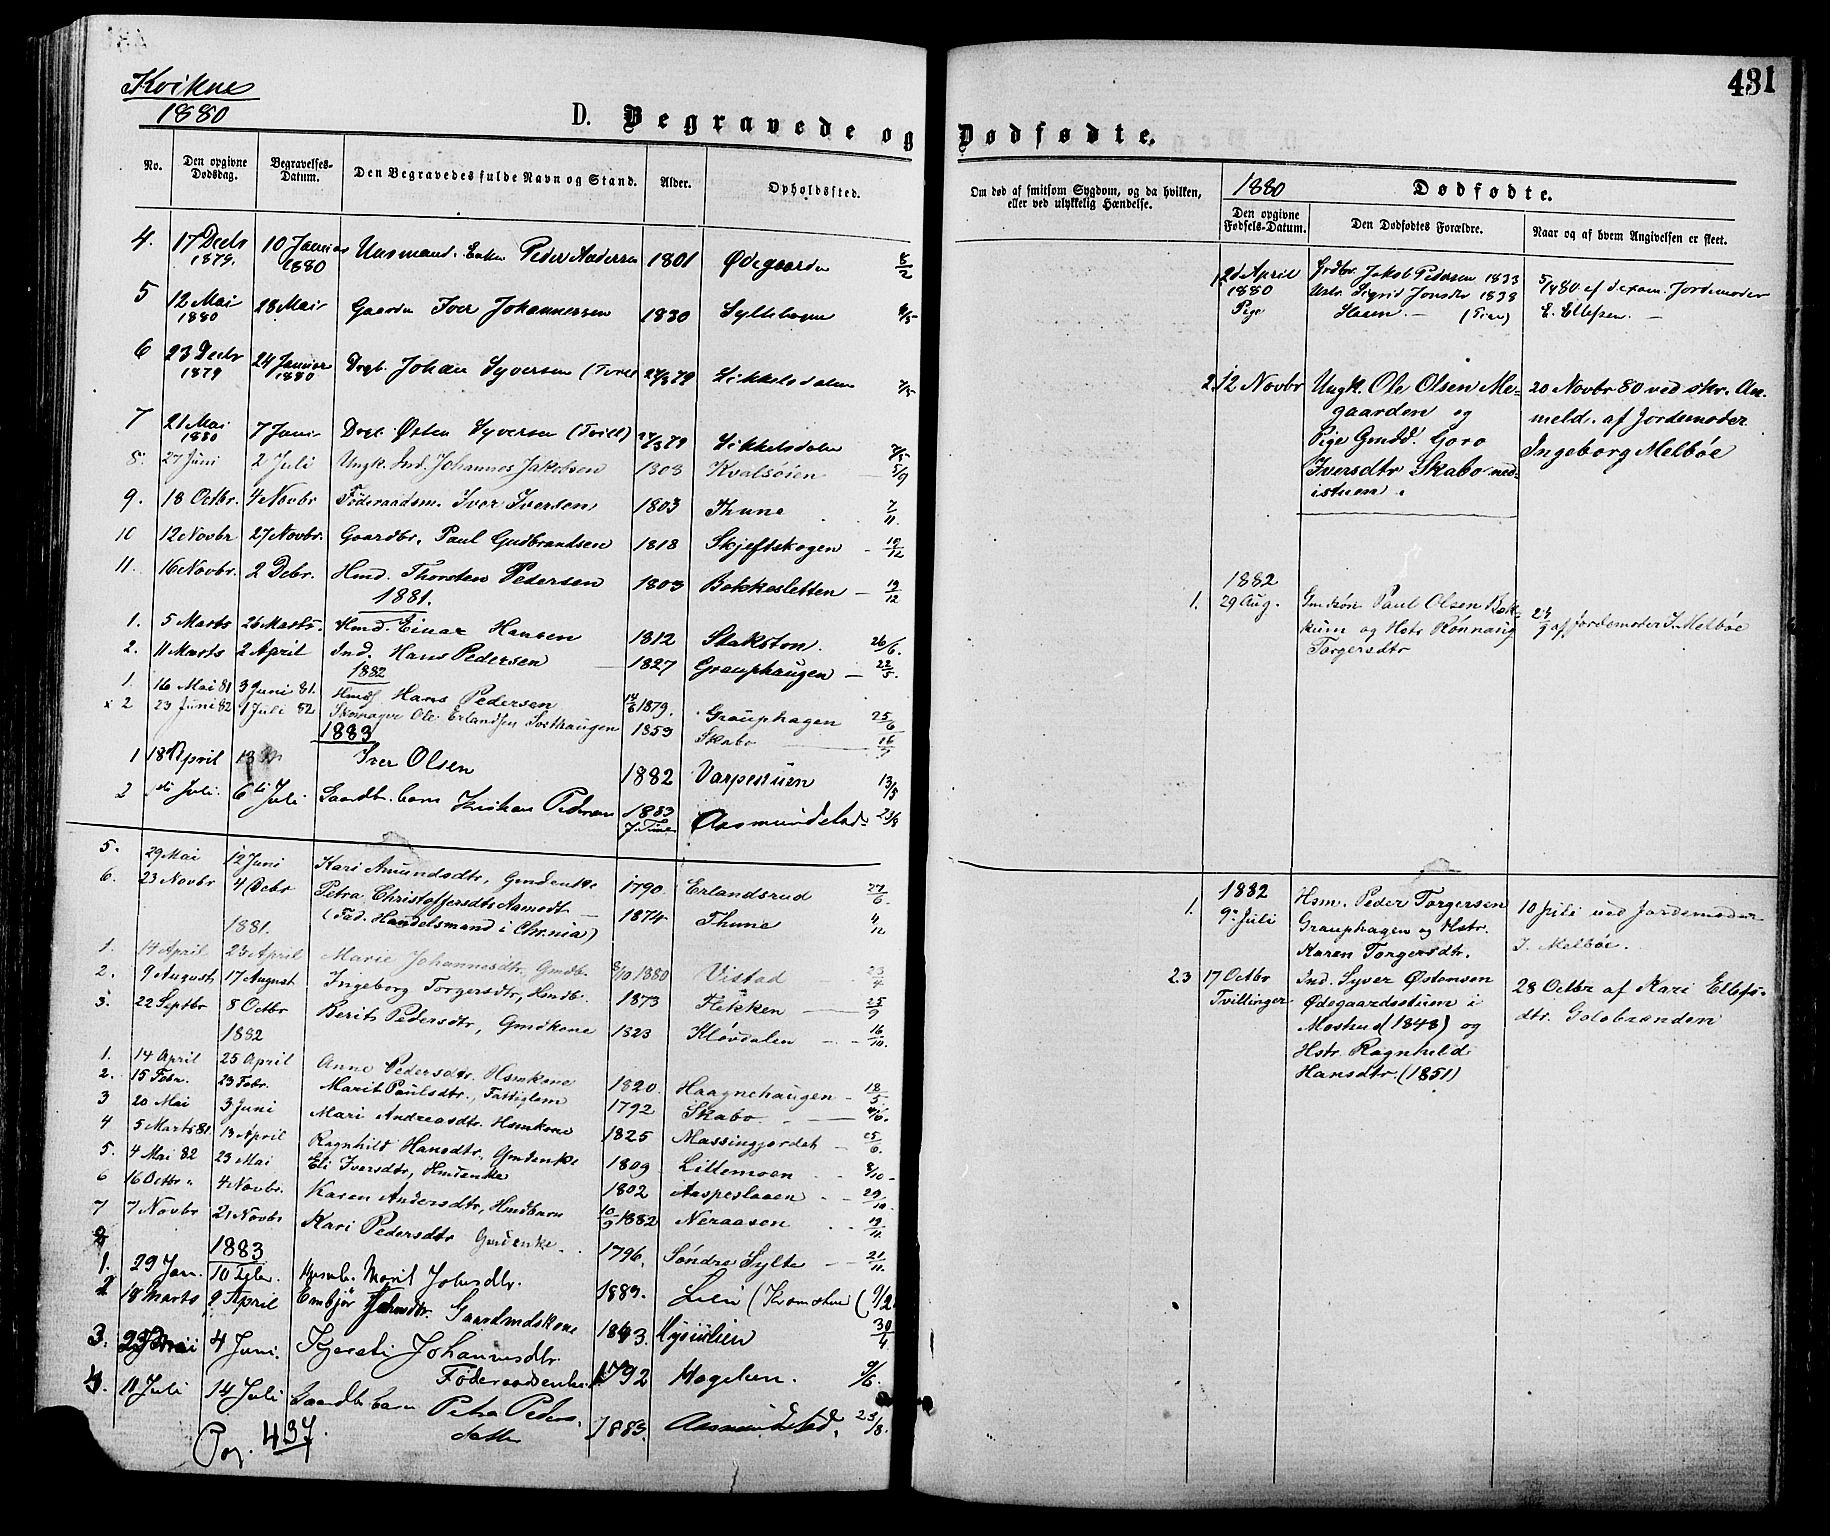 Kvikne
1880
D. Begravede og
No. Den opgivne Dødsdag. Begravelses-Datum. Den Begravedes fulde Navn og Stand. Alder. Opholdssted.
4. 17 Decbr 1879. 10 Januar 1880 Peder Andersen 1801 Ødegaarden 8/2
5 12 Mai 1880 28 Mai Iver Johannessen 1830 Syltebogen
6 23 Decbr 1879 24 Januar 1880 Johan Syversen (Tvill) Sikkelsdalen
7 21 Mai 1880 7 Juni Østen Syversen (Tvill) Sikkelsdalen
8. 27 Juni 2 Juli Ungk. Ind. Johannes Jakobsen 1803 Kvalsøien 5/9
9. 18 Octbr. 4 Novbr Føderaadsm. Iver Iversen 1803 Thune 7/11
10 12 Novbr 27 Novbr. Gaardbr. Paul Gudbrandsen 1818 Skjeftskogen 19/12
11. 16 Novbr. 2 Debr. Hmd. Thorsten Pedersen 1803 Bakkesletten 19/12
1881.
1. 5 Marts 26 Marts. Hmd. Einar Hansen 1812 Stakston. 26/6.
2. 11 Marts 2 April Ind. Hans Pedersen 1827 Grauphaugen 22/5.
1882
1. 16 Mai 81 3 Juni 81. Hans Pedersen 14/6 1879. Grauphagen 25/6
x 2 23 Juni 82 1 Juli 82 Skomager Ole Erlandsen 1859 Skabo 16/7
1883
1 18 April Iver Olsen 1882 Varpestuen 13/5
2 Juli. 6 Juli Gaardbr. barn Kristian Pedersen 1883 7 Timer Aasmundstad 23/8
5. 29 Mai 12 Juni Kari Amundsdtr, Gmdenke 1790 Erlandsrud 27/6
6. 23 Novbr 4 Debr Petra Christoffersdtr Aamodt 1874 Thune 4/12
(Fad. Handelsmand i Chr.nia)
1881.
1. 14 April 23 April Marie Johannesdtr, Gmdb. 8/10 1880 Vistad 23/4
2. 9 August 17 August Ingeborg Torgersdtr, Hmdb. 1873 Flekken 25/9
3. 22 Septbr 8 Octbr Berit Pedersdtr, Gmdkone 1823 Kløvdalen 16/10
1882
1. 14 April 25 April Anne Pedersdtr. Hsmkone 1820. Haagnehaugen 18/5
2. 15 Febr. 23 Febr. Marit Paulsdtr., Fattiglem 1792 Skabo 4/6.
3 20 Mai 3 Juni Mari Andreasdtr. Hsmkone 1825 Massingjordet 25/6
4 5 Marts 81. 13 April Ragnhild Hansdtr., Gmdenke 1809 Lillemoen 8/10
5. 4 Mai 82 23 Mai Eli Iversdtr, Hmdenke 1802 Aaspeslaaen 29/10
6 16 Octbr " 4 Novbr. Karen Andersdtr, Hmdbarn 10/9 1882 Neraasen 19/11
7 7 Novbr 21 Novbr Kari Pedersdtr Gmdenke. 1796. Søndre Sylte 21/11
1883
1. 29 Jan. 10 Febr. Marit Johnsdtr. 1889. Lien 9/2
2 18 Marts 9 April Embjør Gaardmdskone 1843. 30/4
3. Mai 4 Juni. Kjersti Johannesdtr. Føderaadsenke 1792 Hageløen. 9/6
4. 11 Juli 14 Juli Gaardbr. barn Petra Pedersdatter 1883. Aasmundstad. 23/8.
Pag. 437.
431
Dødfødte.
Om død af smitsom Sygdom, og da hvilken, eller ved ulykkelig Hændelse.
1880 Dødfødte.
Den opgivne Fødsels-Datum. Den Dødfødtes Forældre. Naar og af hvem Angivelsen er skeet.
1. 2d April 1880 Pige
Grdbr. Jakob Pedersen 1833
Hstr. Sigrid Jonsdtr 1838
af d exam. Jordemoder
E. Ellefsen.
2. 12 Novbr Ungk. Ole Olsen Megaarden og
Pige Gmdd. Goro
Iversdtr Skabo nedistuen.
20 Novbr 80 ved skr. Anmeld. af Jordemoder
Ingeborg Melbøe
1882
1. 29 Aug. Paul Olsen Bakkum og Hstr Rønnaug
Torgersdtr
af Jordemoder I. Melbøe
1882
1. 9. Juli Hsm. Peder Torgersen
Grauphagen og Hstr.
Karen Torgersdtr.
10 Juli ved Jordemoder
I. Melbøe.
2.3 17 Octbr Tvillinger
Ind. Syver Østensen
Ødegaardsstuen i
Mosbud (1848) og
Hstr. Ragnhild
Hansdtr. (1851)
28 Octbr af Kari Ellefsdtr. Golobranden